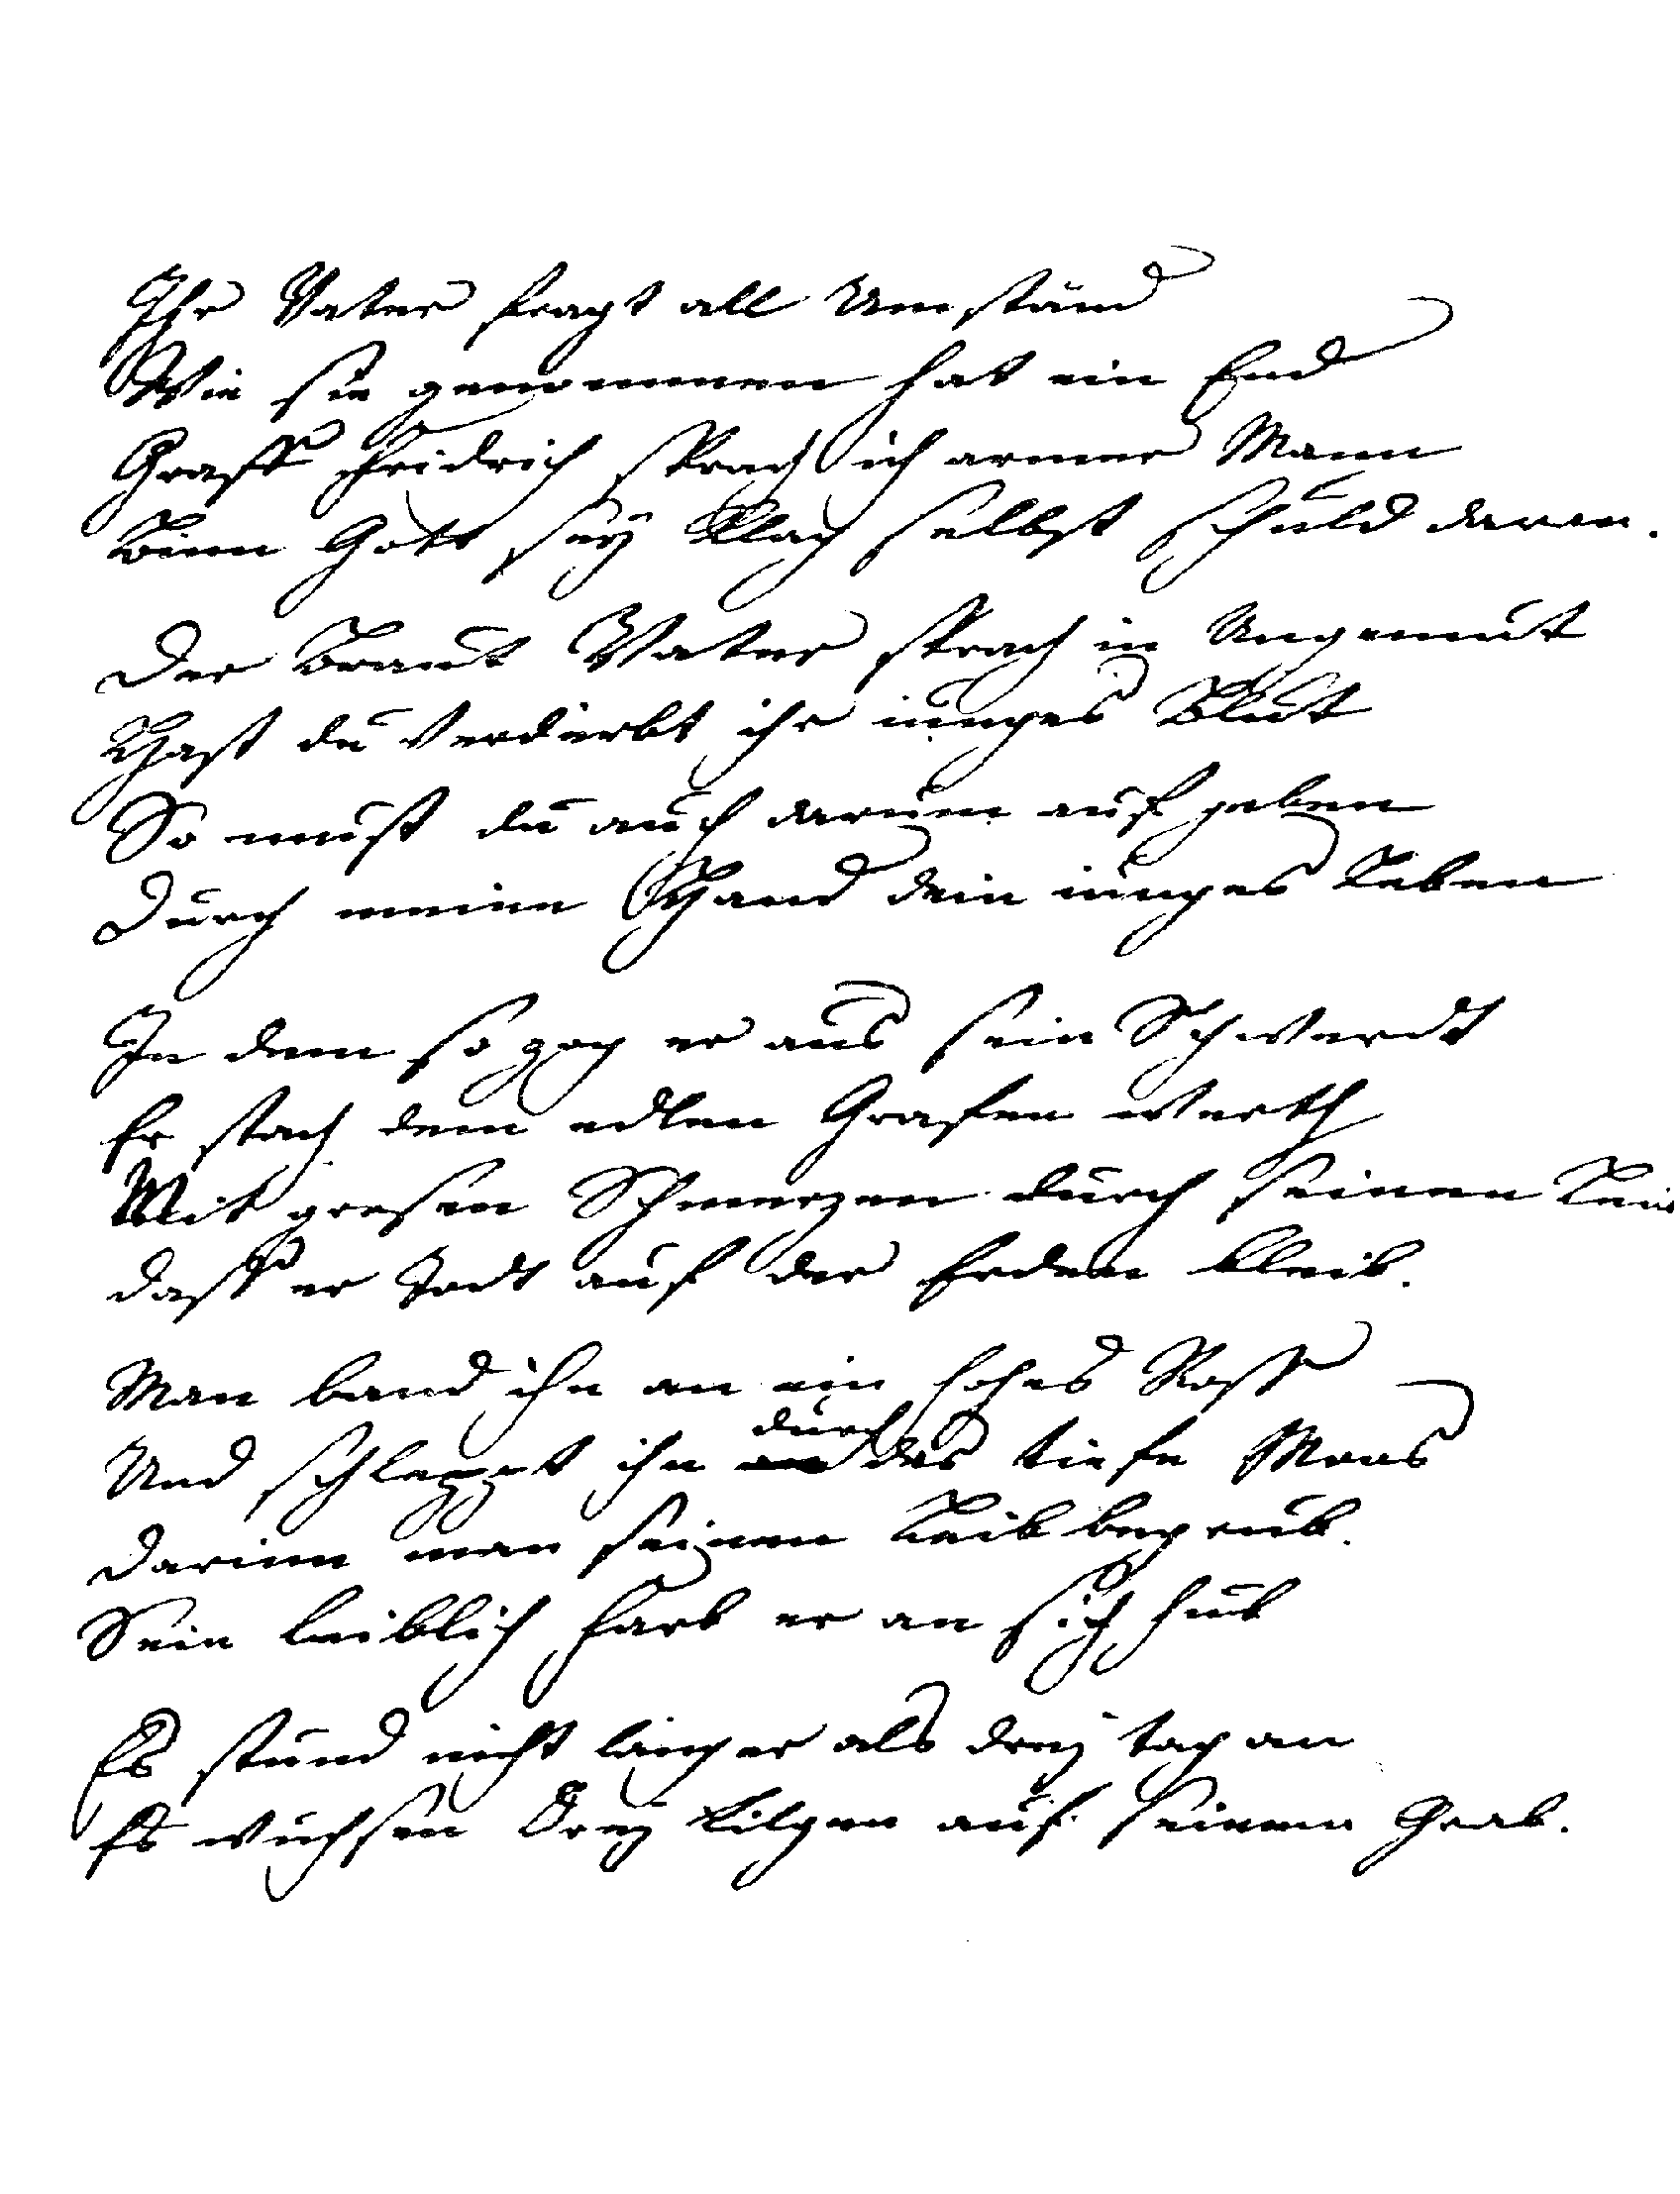 Ihr Vater fragt all Umständ
Wie sie genommen hat ein End
Graff Fridrich sprach ich armer Mann
Binn Gott sey klag selbst schuld daran.
Der Braut Vater sprach in Ungemut
Hast du verderbt ihr iunges Blut
So must du auch darum auf geben
Durch meine Hand dein iunges Leben
In dem so zog er aus sein Schwerdt
Er stach dem edlen Grafen werth
Mit grosen Schmerzen durch seinen Leib
Dass er Todt auf der Erden bleib.
Man band ihn an ein hohes Ross
Und schleppt ihn durch das tiefe Moos
Darinn man seinen Leib begrub.
Sein leiblich Farb er an sich hub
Es stund nicht länger als drey tag an
Es wuchsen Drey Lilgen auf seinem Grab.